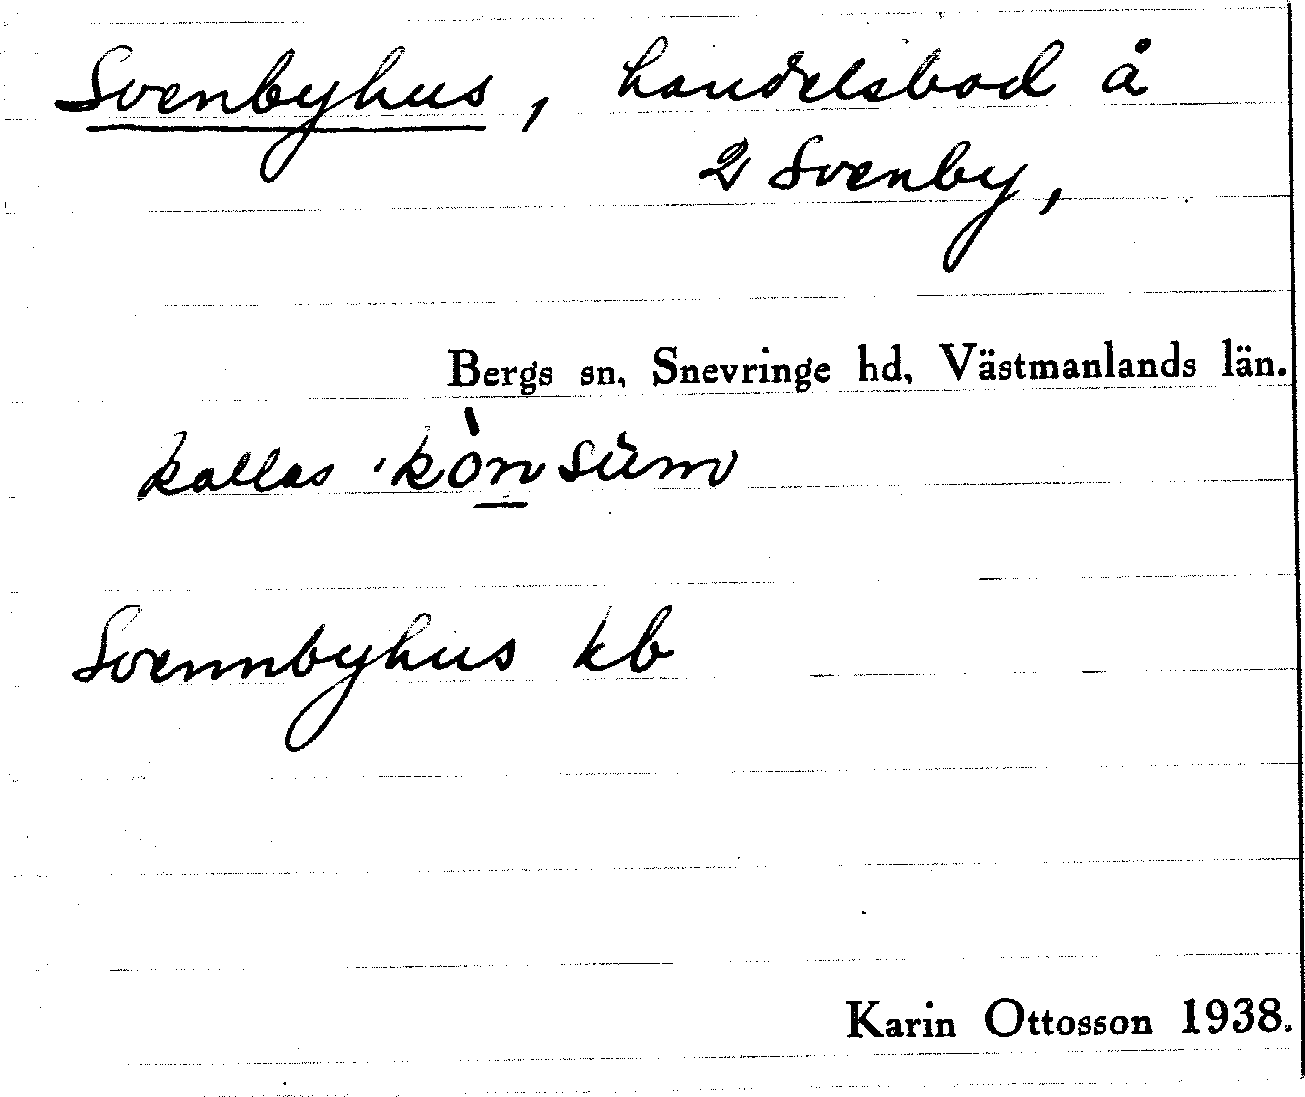 Svenbyhus, handelsbod å
2 Svenby,
Bergs sn, Snevringe hd, Västmanlands län.
kallas ˈkònsùm
Svennbyhus kb
Karin Ottosson 1938.